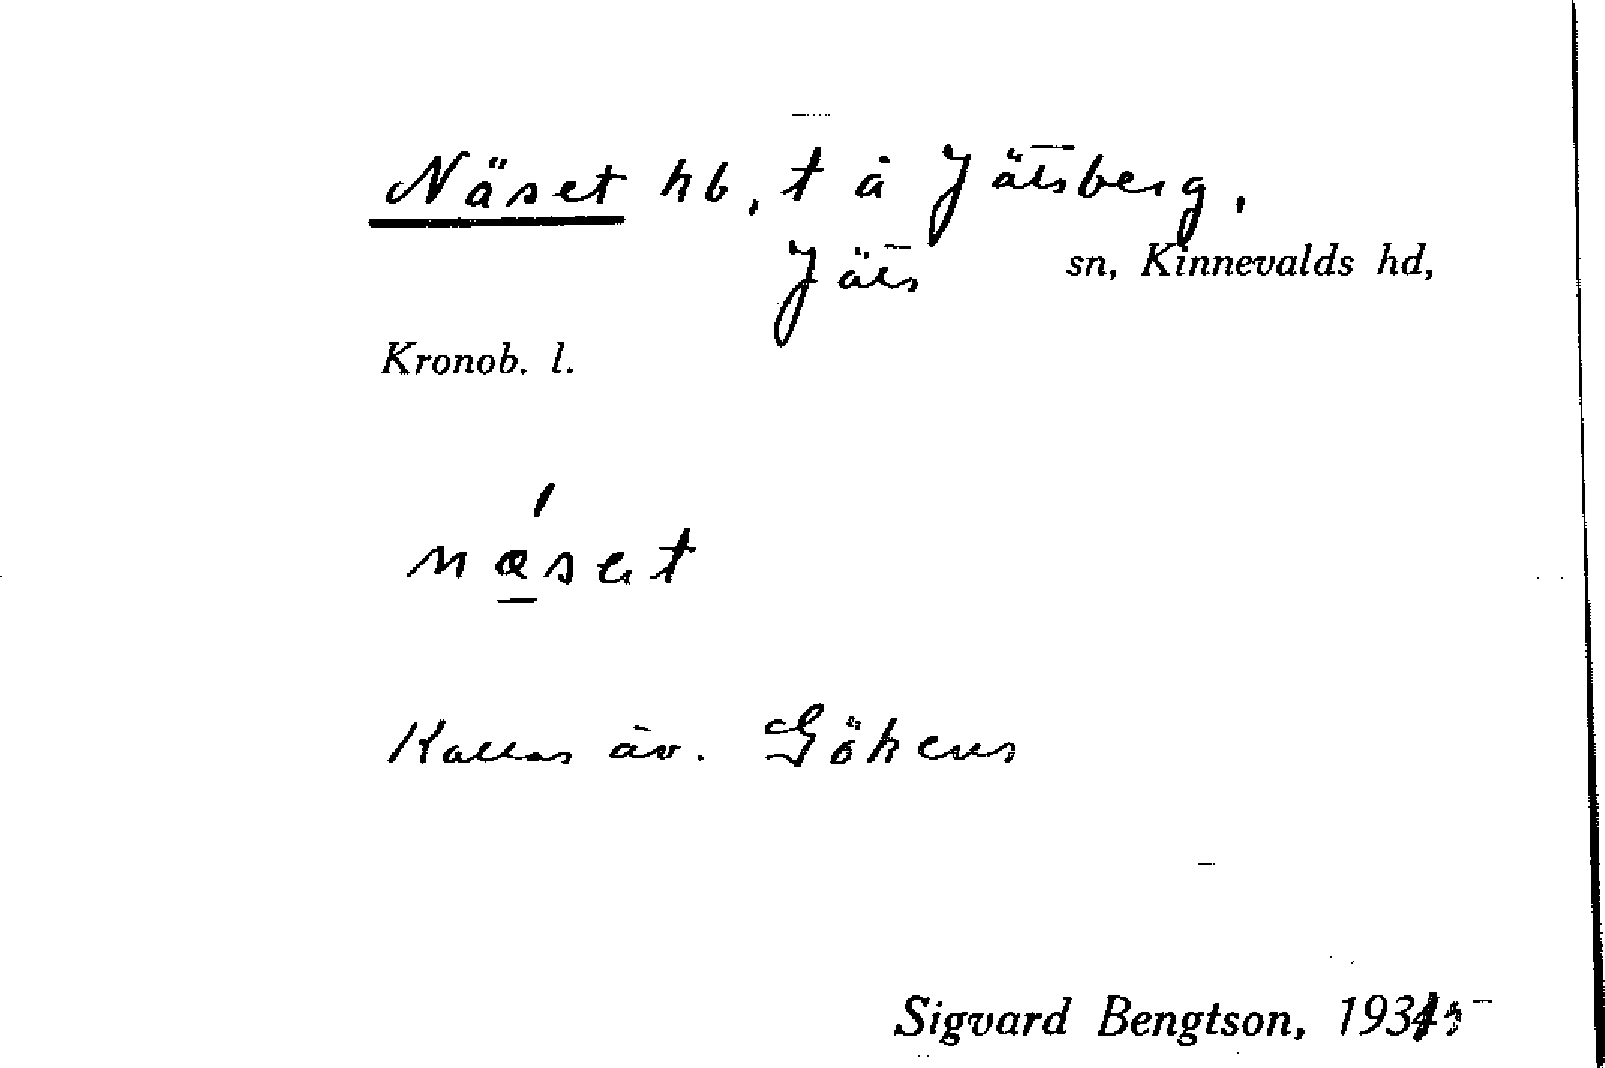 Näset hb, t å Jätsberg,
Jäts sn, Kinnevalds hd,
Kronob. l.
næset
Kallas äv. Gökens
Sigvard Bengtson, 1935